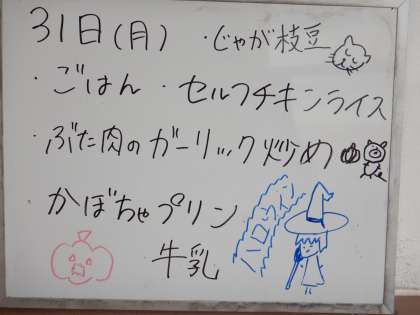 31日(月) ・じゃが枝豆
・ごはん ・セルフチキンライス
・ぶた肉のガーリック炒め
かぼちゃプリン
牛乳
ハロウィン